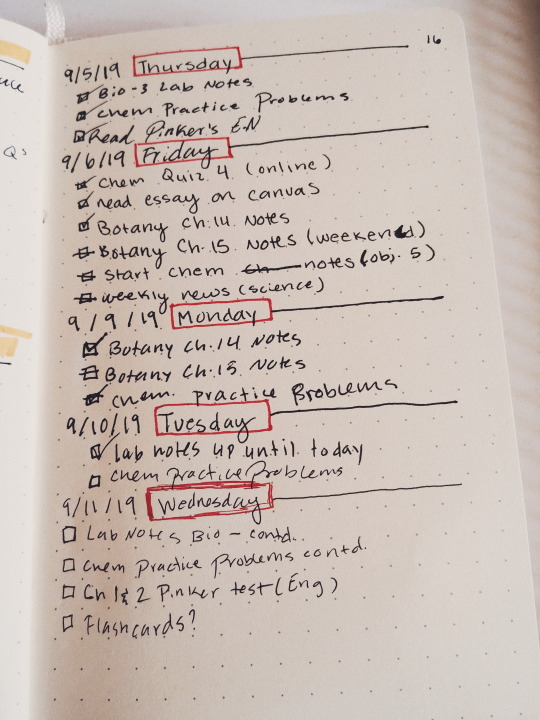 16
9/5/19 Thursday
Bio-3 Lab Notes
Chem Practice Problems
Read Pinker's E.N
9/6/19 Friday
Chem Quiz 4 (online)
read essay on canvas
Botany Ch.14 Notes
Botany Ch.15 Notes (weekend)
Start chem notes (obj. 5)
weekly news (science)
9/9/19 Monday
Botany Ch.14 Notes
Botany Ch.15 Notes
chem. practice Problems
9/10/19 Tuesday
lab notes up until today
chem practice Problems
9/11/19 Wednesday
Lab Notes Bio - contd.
Chem Practice Problems contd.
Ch 1 & 2 Pinker test (Eng)
Flashcards?
Qs